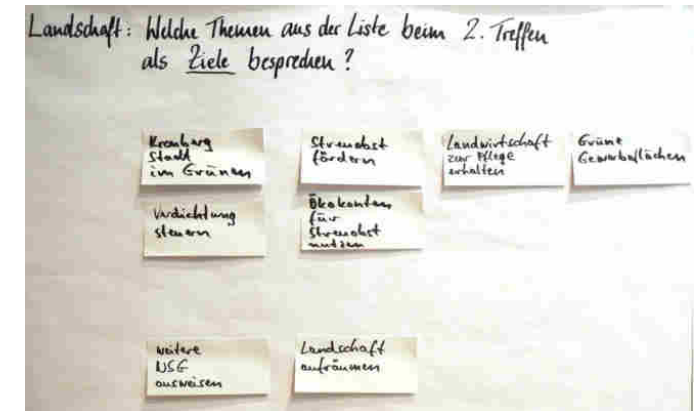 Landschaft: Welche Themen aus der Liste beim 2. Treffen
als Ziele besprechen?
Kronberg
Stadt
im Grünen
Streuobst
fördern
Landwirtschaft
zur Pflege
erhalten
Grüne
Gewerbeflächen
Verdichtung
steuern
Ökokonten
für
Streuobst
nutzen
weitere
NSG
ausweisen
Landschaft
aufräumen